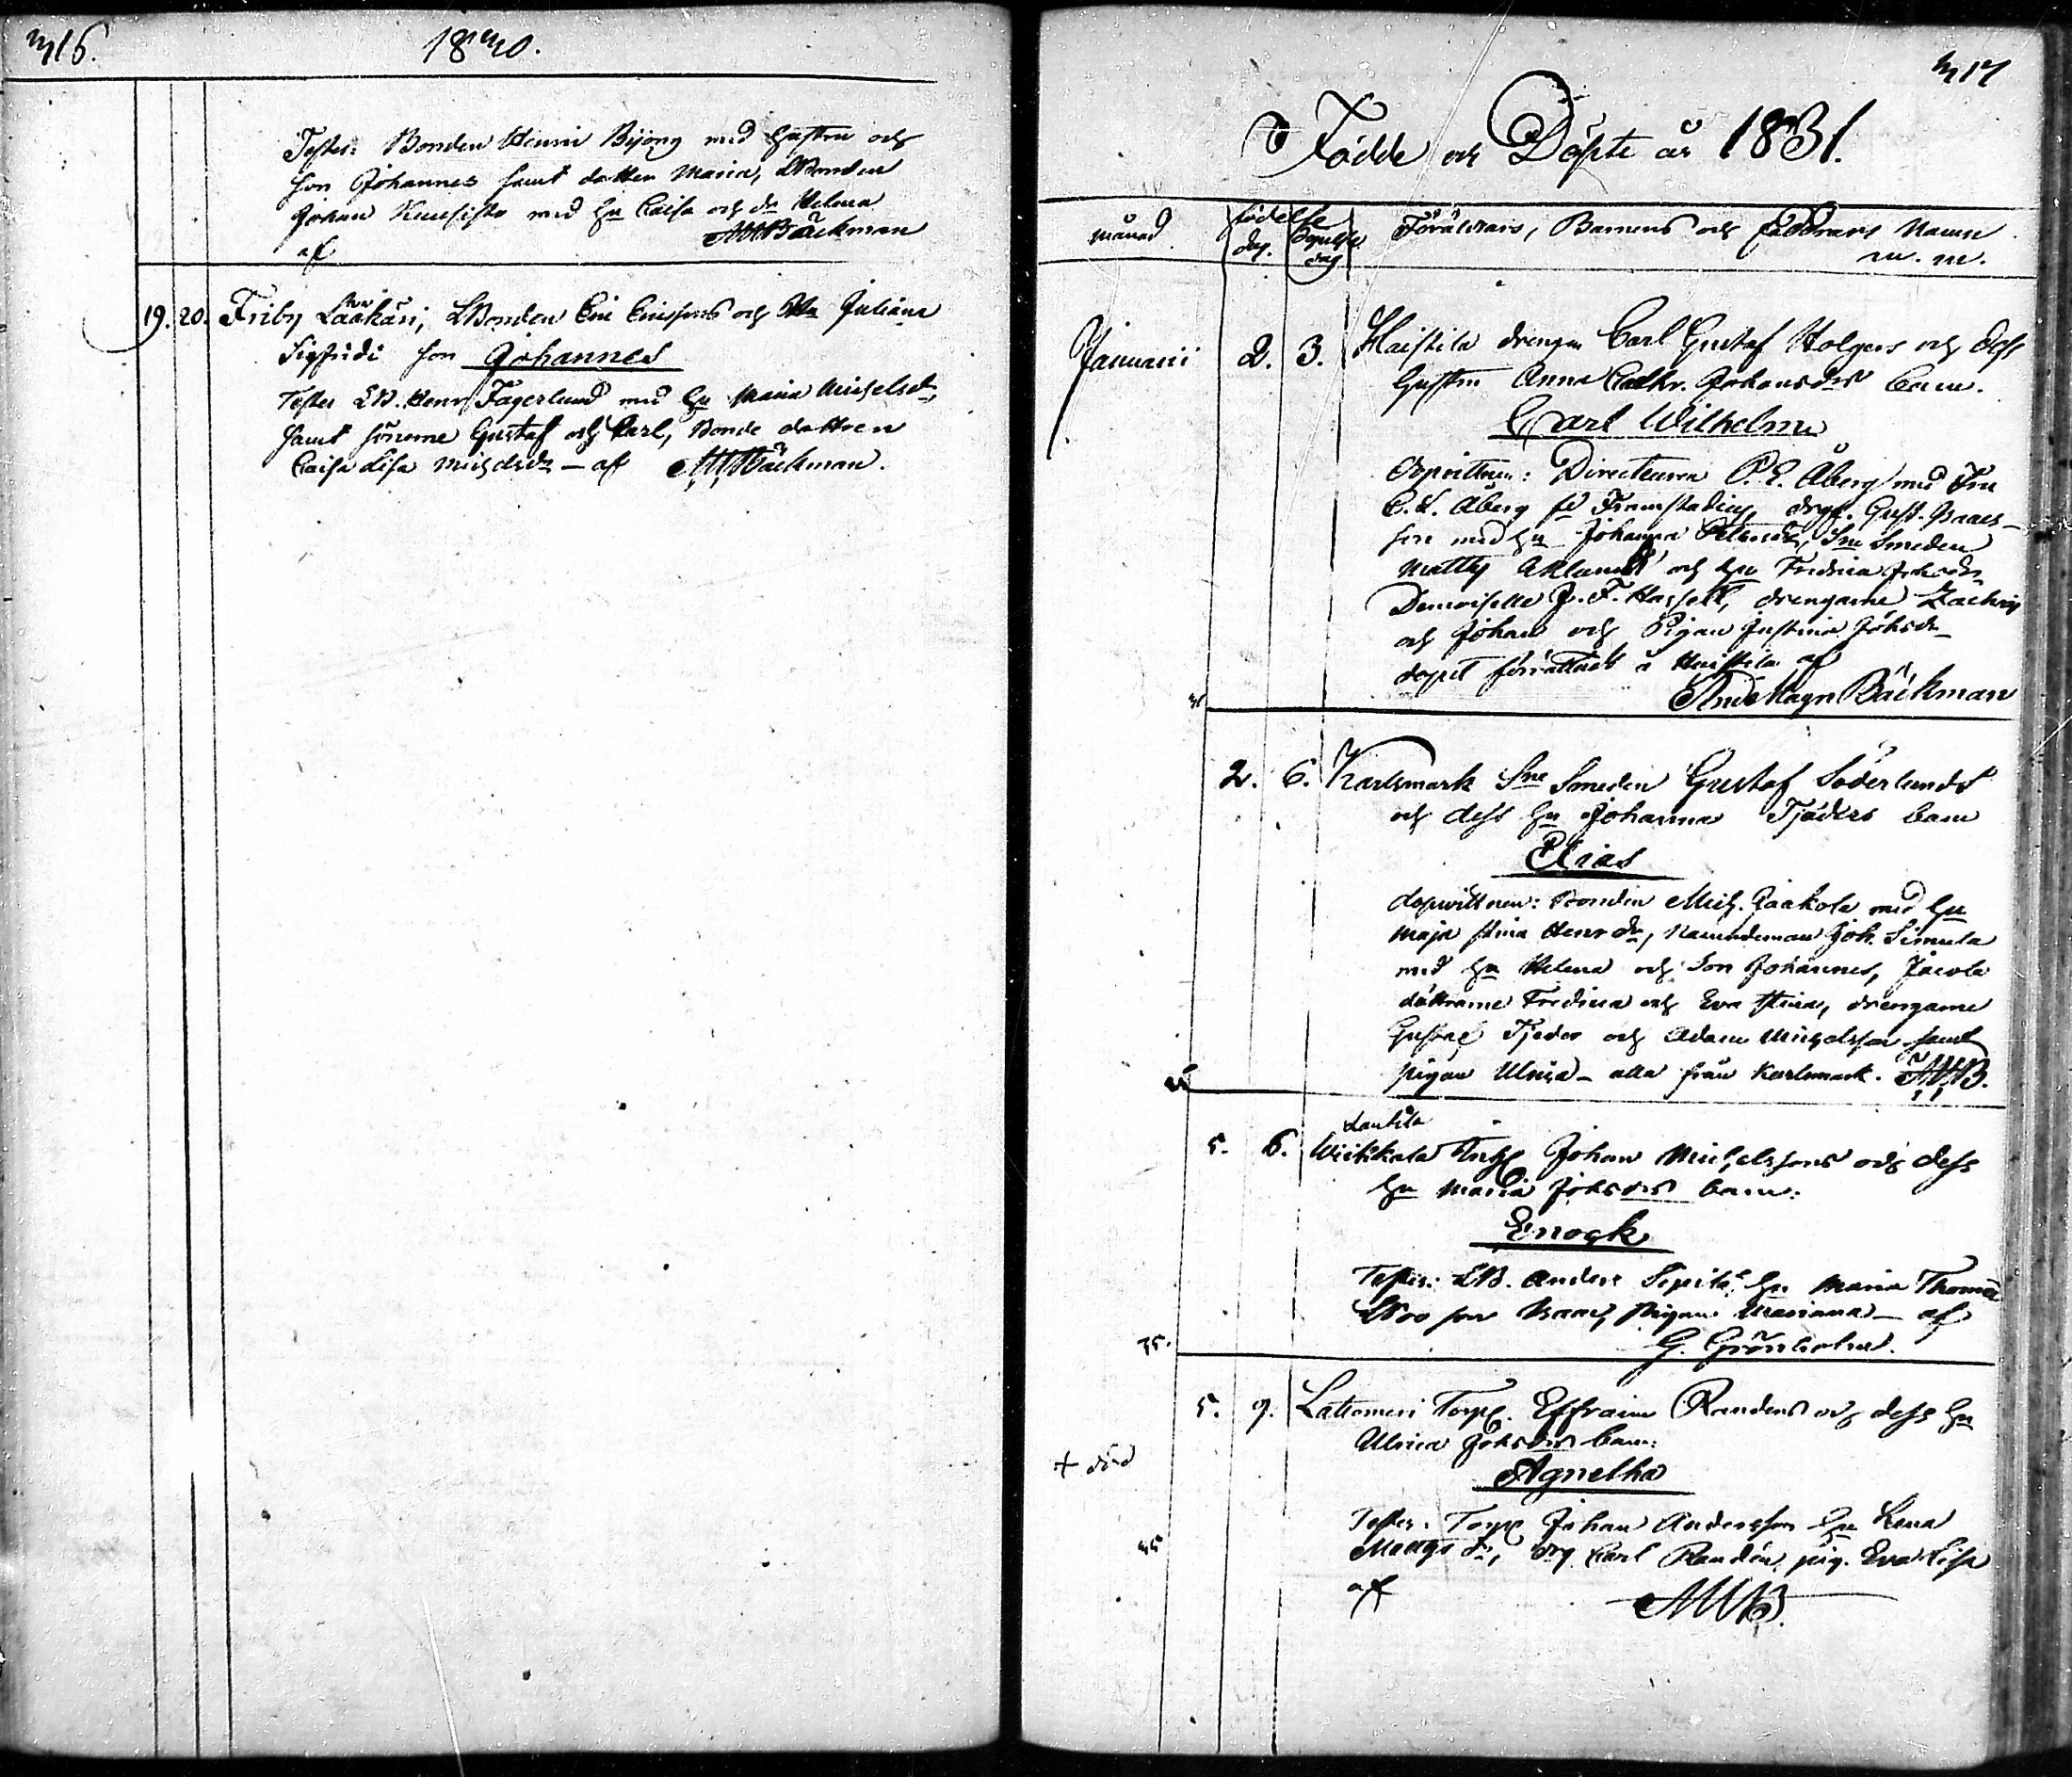 316. 1830.
Testes: Bonden Henric Bijong med hustru och
son Johannes samt dotter Maria, LBonden
Johan med hu Caisa och dr Helena
af AMBäckman
19. 20. Friby Lääkäri, LBonden Eric Ericssons och hu Juliana
Sigfridi son Johannes
Testes LB. Henr Fagerlund med hu Maria Michelsdr,
samt sönerne Gustaf och Carl, Bonde dottren
Caisa Lisa Michelsdr – af AMBäckman.
317
Födde och Döpte år 1831.
månad. födelse dag. döpelse dag Föräldrars, Barnens och Faddrars Namn
m. m.
Januarii 2. 3. Haistila drengen Carl Gustaf Holgers och dess
hustru Anna Cathr. Johansdrs barn.
Carl Wilhelm
Dopvittnen: Directeuren P. E. Åberg med Fru
C. L. Åberg fd Framstading, drgn. Gust. Isaacs-
son med hu Johanna, Sne Smeden
Matts och hu Fredrica
Demoiselle J. F. Hassell, drengarne Zachris
och Johan och Pigan Justina Johsdr
dopet förrättadt å Haistila af
And Magn Bäckman
2. 6. Karlsmark Sne Smeden Gustaf Söderlunds
och dess hu Johanna Tjäders barn
Elias
dopvittnen: Bonden Mich. Jaakola med hu
Maja Stina Henrdr, Nämndeman Joh. Simula
med hu Helena och Son Johannes, Jacola
döttrarne Fredrica och Eva Stina, drengarne
Gustaf Tjeder och Adam Michelsson samt
pigan Ulrica – alla från Karlsmark. AMB.
Lautila
5. 6. Wiikkala Inh Johan Michelssons och dess
hu Maria Johsdrs barn.
Enock
Testes: LB. Anders Sepilä hu Maria Thomae
LBo son Isaac, Pigan Mariana – af
35. G. Grönholm.
5. 9. Lattomeri Torp. Effraim Randens och dess hu
Ulrica Johsdrs barn:
+ död Agnetha
Testes: Torp Johan Andersson hu Lena
35 Mattsdr, drg Carl Randén, pig. Eva Lisa
af AMB.